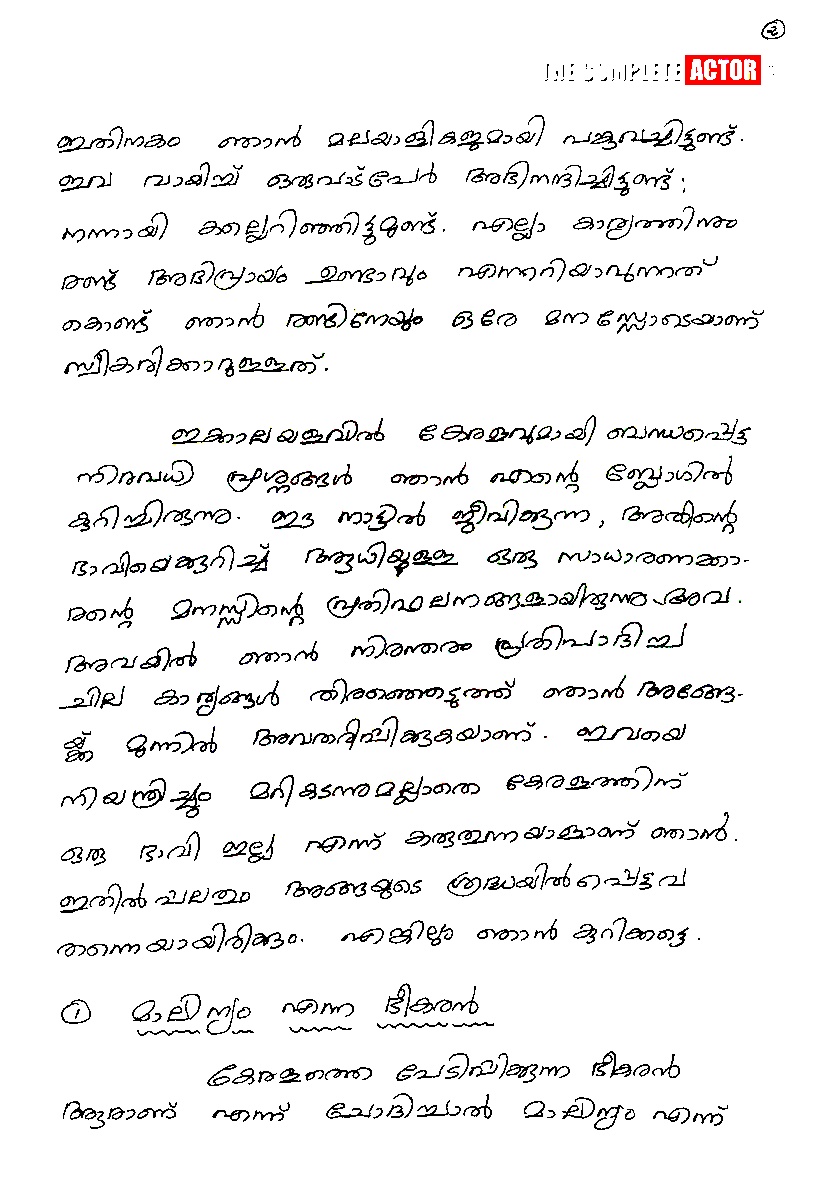 2
THE COMPLETE ACTOR
ഇതിനകം ഞാൻ മലയാളികളുമായി പങ്കുവച്ചിട്ടുണ്ട്.
ഇവ വായിച്ച് ഒരുപാട്പേർ അഭിനന്ദിച്ചിട്ടുണ്ട്;
നന്നായി കല്ലെറിഞ്ഞിട്ടുമുണ്ട്. എല്ലാ കാര്യത്തിനും
രണ്ട് അഭിപ്രായം ഉണ്ടാവും എന്നറിയാവുന്നത്
കൊണ്ട് ഞാൻ രണ്ടിനേയും ഒരേ മനസ്സോടെയാണ്
സ്വീകരിക്കാറുള്ളത്.
ഇക്കാലയളവിൽ കേരളവുമായി ബന്ധപ്പെട്ട
നിരവധി പ്രശ്നങ്ങൾ ഞാൻ എന്റെ ബ്ലോഗിൽ
കുറിച്ചിരുന്നു. ഈ നാട്ടിൽ ജീവിക്കുന്ന, അതിന്റെ
ഭാവിയെക്കുറിച്ച് ആധിയുള്ള ഒരു സാധാരണക്കാ-
രന്റെ മനസ്സിന്റെ പ്രതിഫലനങ്ങളായിരുന്നു അവ.
അവയിൽ ഞാൻ നിരന്തരം പ്രതിപാദിച്ച
ചില കാര്യങ്ങൾ തിരഞ്ഞെടുത്ത് ഞാൻ അങ്ങേ-
യ്ക്കു മുന്നിൽ അവതരിപ്പിക്കുകയാണ്. ഇവയെ
നിയന്ത്രിച്ചും മറികടന്നുമല്ലാതെ കേരളത്തിന്
ഒരു ഭാവി ഇല്ല എന്ന് കരുതുന്നയാളാണ് ഞാൻ.
ഇതിൽ പലതും അങ്ങയുടെ ശ്രദ്ധയിൽപ്പെട്ടവ
തന്നെയായിരിക്കും. എങ്കിലും ഞാൻ കുറിക്കട്ടെ.
1 മാലിന്യം എന്ന ഭീകരൻ
കേരളത്തെ പേടിപ്പിക്കുന്ന ഭീകരൻ
ആരാണ് എന്ന് ചോദിച്ചാൽ മാലിന്യം എന്ന്